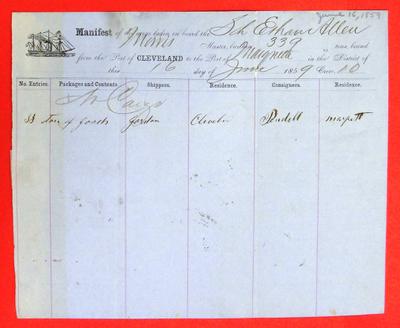 June 16, 1859
Manifest of Cargo taken on board the Sch Ethan Allen
Morris Master, burthen 339 is now bound
from the Port of CLEVELAND to the Port of in the District of
this 16 day of June 1859
No. Entries. Packages and Contents. Shippers. Residence. Consignees. Residence.
No Cargo
ton of goods Gordon Pendell